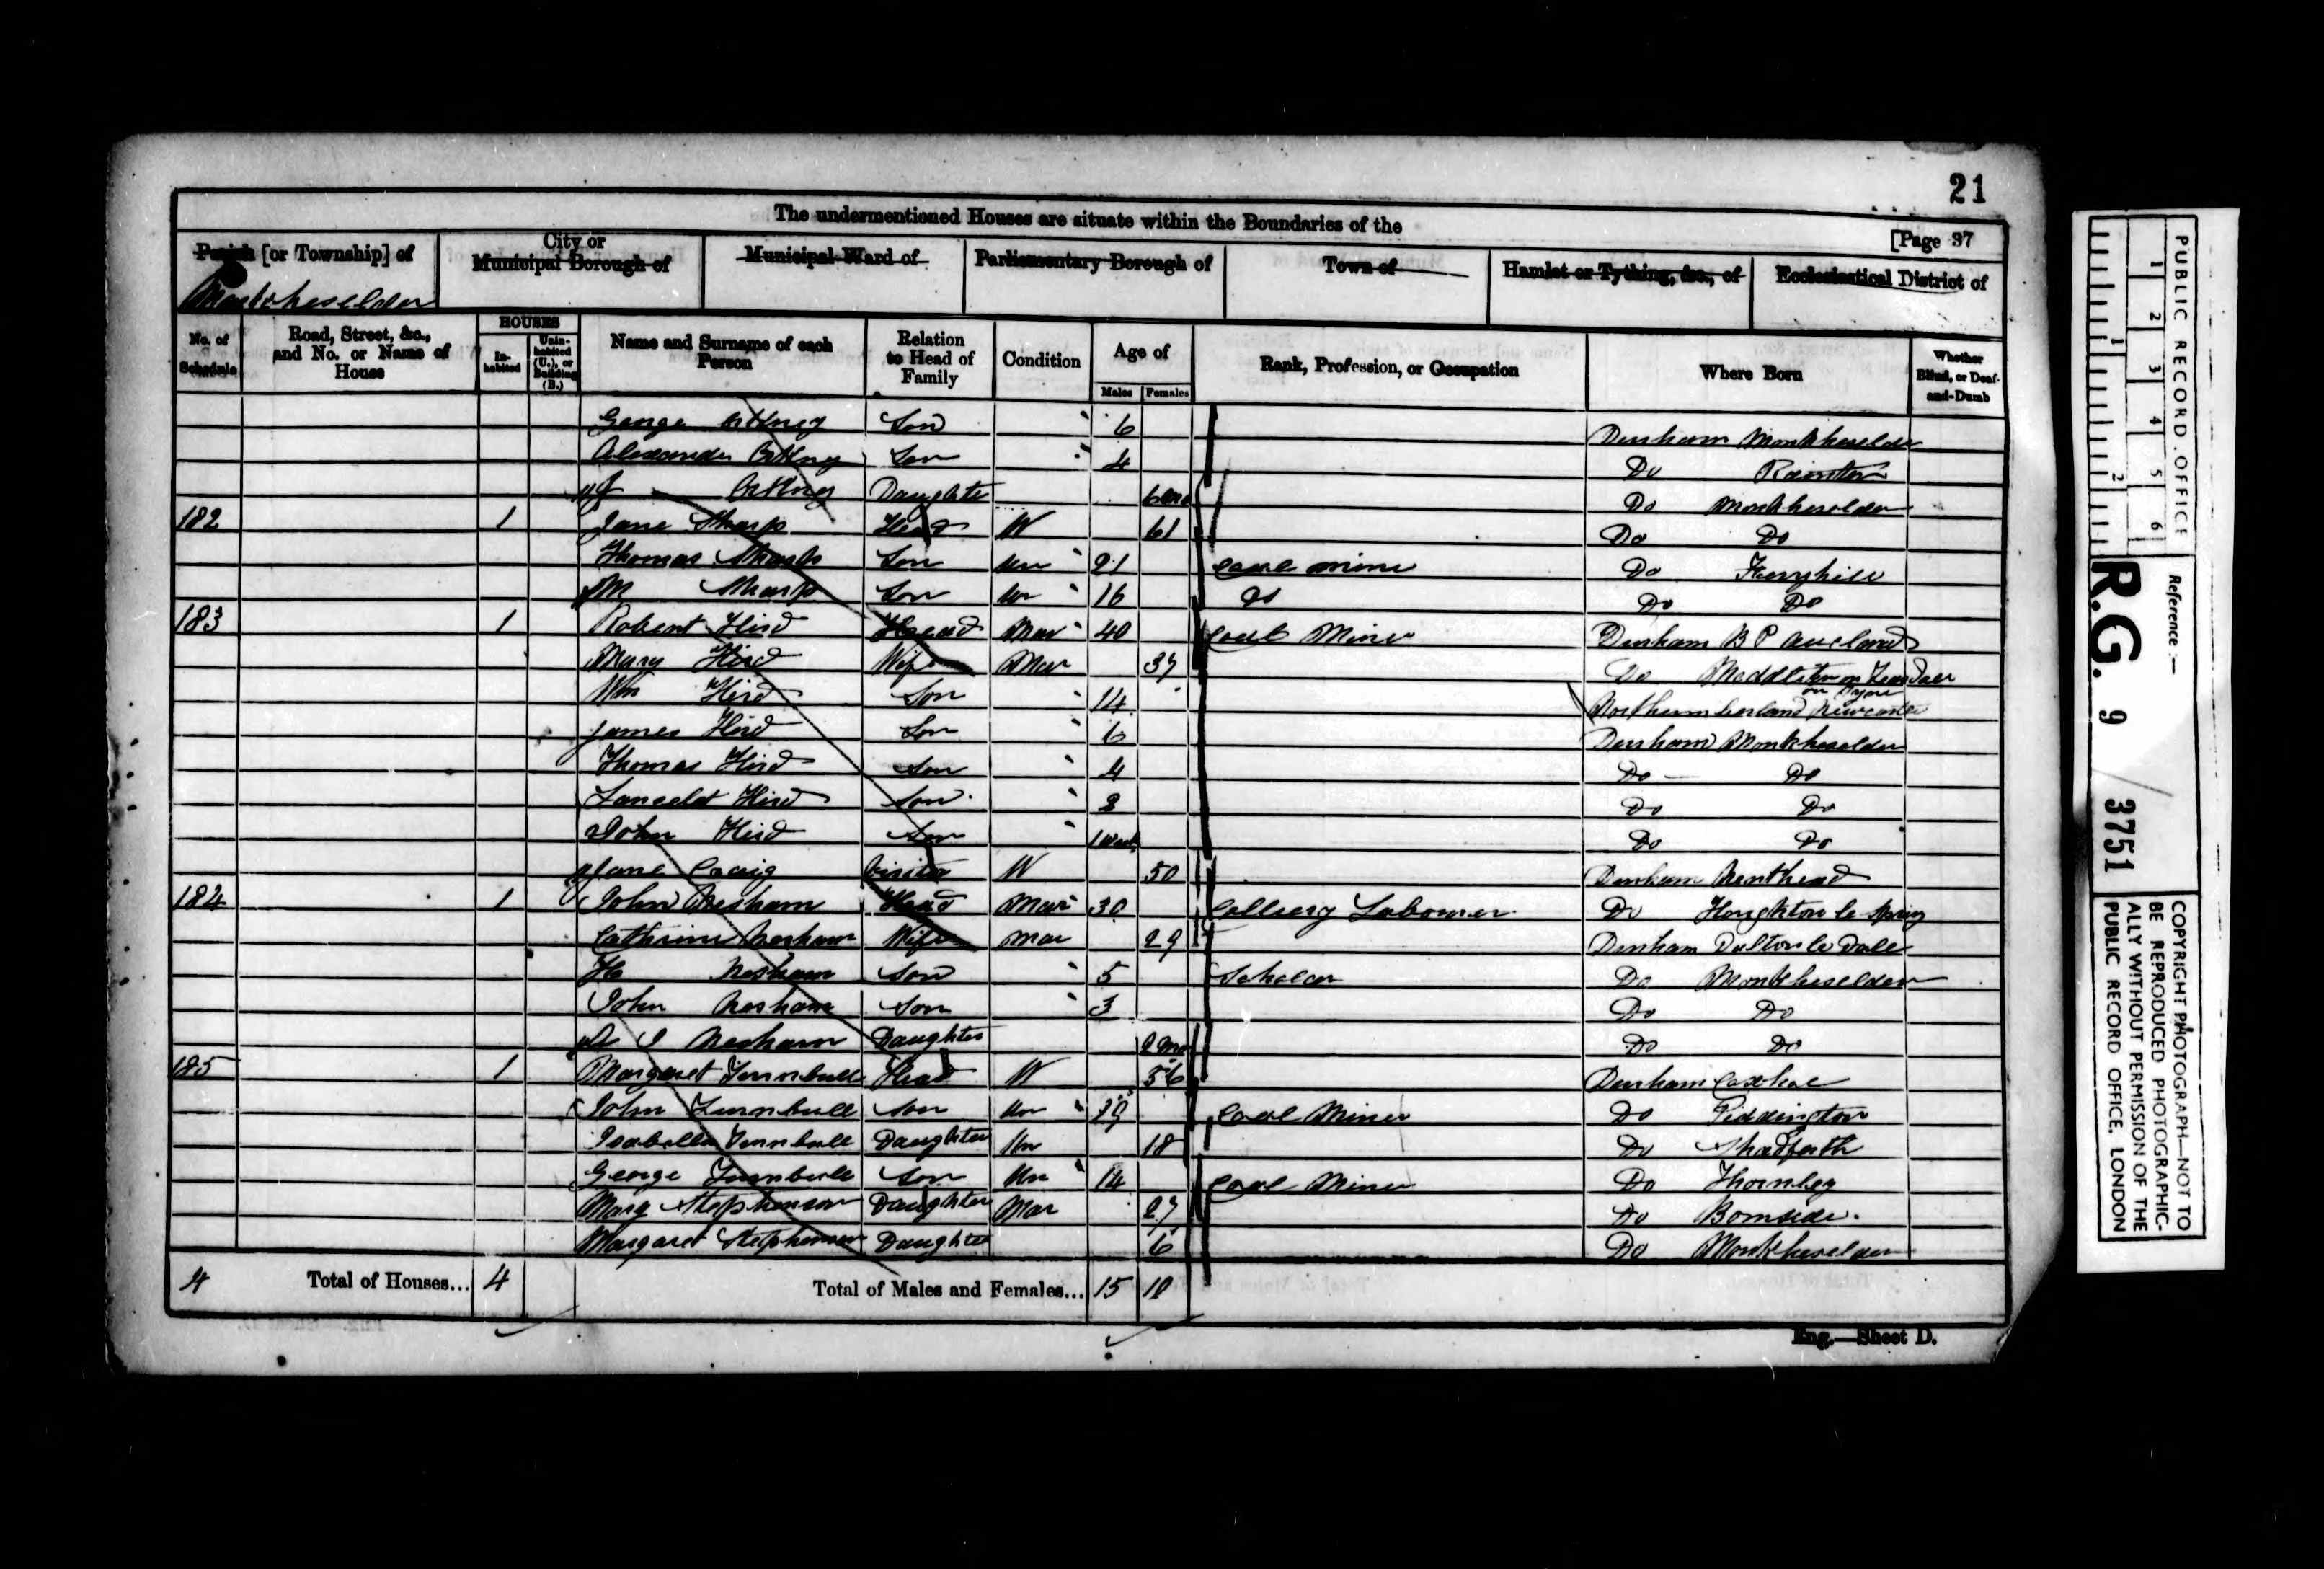 21
The undermentioned Houses are situate within the Boundaries of the
[Page 37
Parish [or Township] of
City or Municipal Borough of
Municipal Ward of
Parliamentary Borough of
Town of
Hamlet or Tything, &c., of
Ecclesiastical District of
Monkheselden
No. of Schedule
Road, Street, &c., and No. or Name of House
HOUSES
In-habited
Unin-habited (U.), or Building (B.)
Name and Surname of each Person
Relation to Head of Family
Condition
Age of
Males
Females
Rank, Profession, or Occupation
Where Born
Whether Blind, or Deaf-and-Dumb
George Son 6 Durham Monkheselden
Alexander Son 4 Do Rainton
Daughter 6 mo Do Monkheselden
182 1 Jane Sharp Head W 61 Do Do
Thomas Sharp Son Un 21 Coal miner Do Ferryhill
Sharp Son Un 16 Do Do Do
183 1 Robert Hird Head Mar 40 Coal Miner Durham B P Aucland
Mary Hird Wife Mar 37 Do Middleton
Wm Hird Son 14 Northumberland Newcastle on Tyne
James Hird Son 6 Durham Monkheselden
Thomas Hird Son 4 Do Do
Lancelot Hird Son 2 Do Do
John Hird Son 1 Week Do Do
Jane Craig Visitor W 50 Durham Nenthead
184 1 John Nesham Head Mar 30 Colliery Labourer Do Houghton le Spring
Catherine Nesham Wife Mar 29 Durham Dalton le Dale
H Nesham Son 5 Scholar Do Monkheselden
John Nesham Son 3 Do Do
Nesham Daughter 2 mo Do Do
185 1 Margaret Turnbull Head W 56 Durham Coxhoe
John Turnbull Son Un Coal Miner Do Piddington
Isabella Turnbull Daughter Un 18 Do Shadforth
George Turnbull Son Un 14 Coal Miner Do Thornley
Mary Stephenson Daughter Mar 27 Do
Margaret Stephenson Daughter 6 Do Monkheselden
4 Total of Houses... 4 Total of Males and Females... 15 10
Eng.—Sheet D.
PUBLIC RECORD OFFICE
1 2 3 4 5 6
1 2
Reference:—
R.G. 9 / 3751
COPYRIGHT PHOTOGRAPH—NOT TO
BE REPRODUCED PHOTOGRAPHIC-
ALLY WITHOUT PERMISSION OF THE
PUBLIC RECORD OFFICE, LONDON